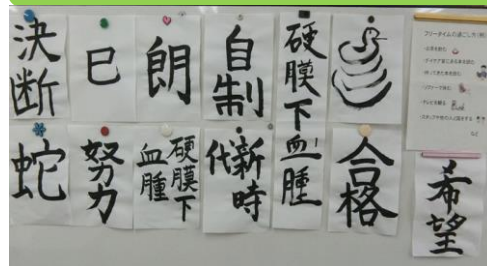 決断
巳
朗
自制
硬膜下血腫
蛇
努力
硬膜下
血腫
新時
代
合格
希望
フリータイムの過ごし方(例)